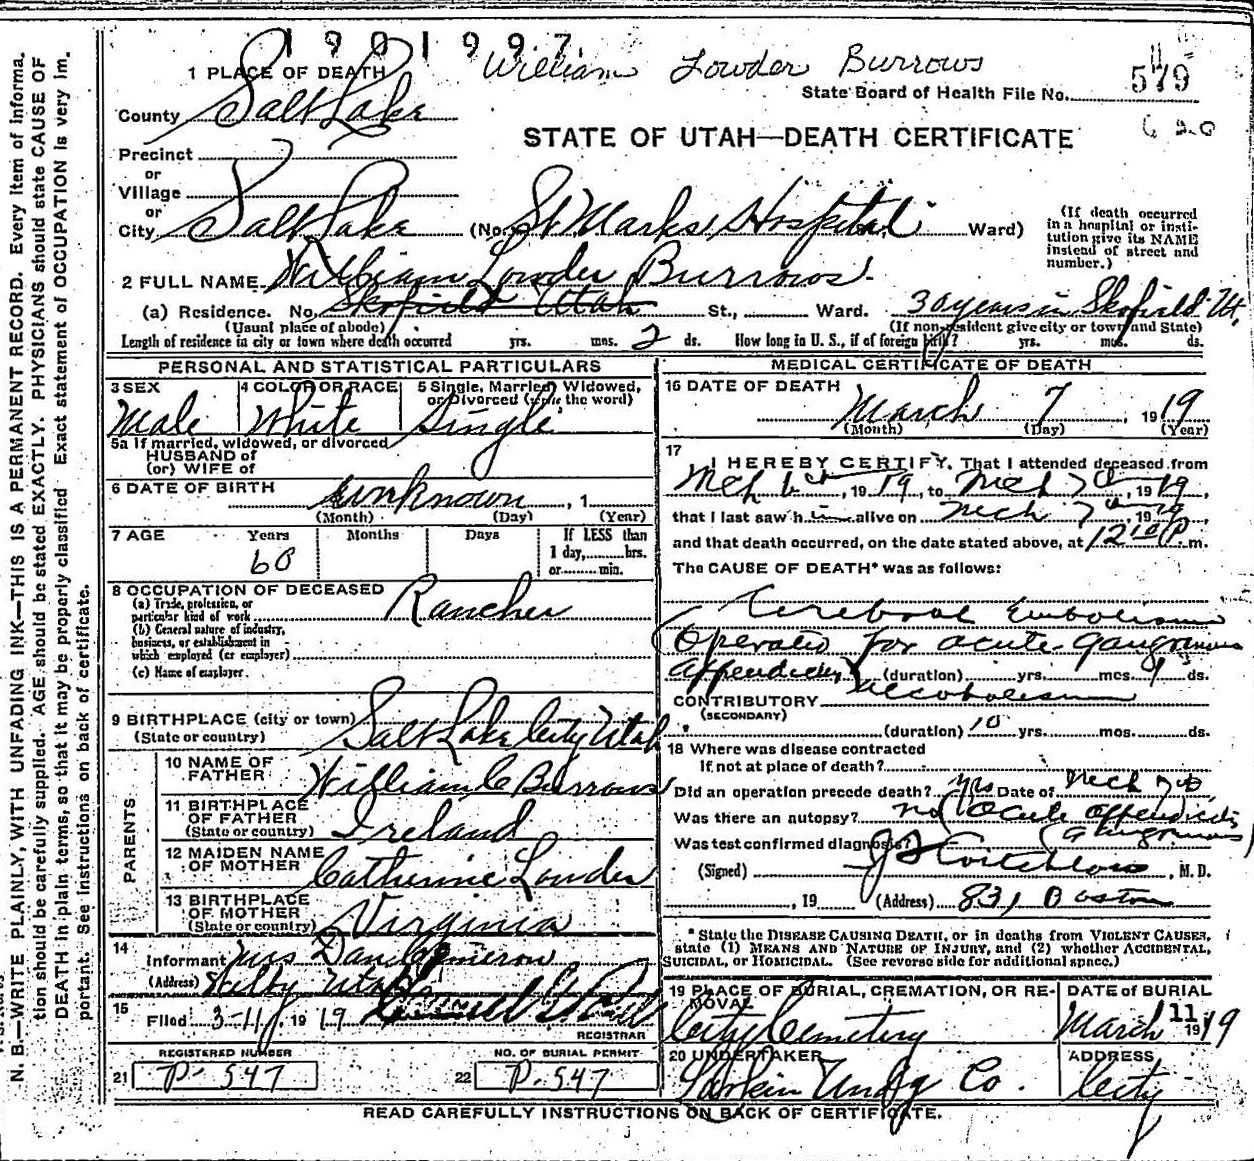 1901997
William Lowder Burrows
1 PLACE OF DEATH
State Board of Health File No. 579
County Salt Lake
620
STATE OF UTAH—DEATH CERTIFICATE
Precinct
or
Village
or
City Salt Lake (No. St Marks Hospital Ward)
(If death occurred in a hospital or institution give its NAME instead of street and number.)
2 FULL NAME William Lowder Burrows
(a) Residence. No. Skofield Utah St., Ward. 30 years in Skofield Ut.
(Usual place of abode) (If non-resident give city or town and State)
Length of residence in city or town where death occurred yrs. mos. 2 ds. How long in U. S., if of foreign birth? yrs. mos. ds.
PERSONAL AND STATISTICAL PARTICULARS
3 SEX Male
4 COLOR OR RACE White
5 Single, Married, Widowed, or Divorced (write the word) Single
5a If married, widowed, or divorced
HUSBAND of
(or) WIFE of
6 DATE OF BIRTH unknown, 1
(Month) (Day) (Year)
7 AGE Years 60 Months Days If LESS than 1 day, hrs. or min.
8 OCCUPATION OF DECEASED
(a) Trade, profession, or particular kind of work Rancher
(b) General nature of industry, business, or establishment in which employed (or employer)
(c) Name of employer
9 BIRTHPLACE (city or town) Salt Lake City Utah
(State or country)
PARENTS
10 NAME OF FATHER William C Burrows
11 BIRTHPLACE OF FATHER (State or country) Ireland
12 MAIDEN NAME OF MOTHER Catherine Lowder
13 BIRTHPLACE OF MOTHER (State or country) Virginia
14
Informant Mrs Dan Cameron
(Address) Utah
15
Filed 3-11, 1919
REGISTRAR
REGISTERED NUMBER
21 P-547
NO. OF BURIAL PERMIT
22 P-547
MEDICAL CERTIFICATE OF DEATH
16 DATE OF DEATH
March 7, 1919
(Month) (Day) (Year)
17
I HEREBY CERTIFY, That I attended deceased from
Mch 6th, 1919, to Mch 7th, 1919,
that I last saw him alive on Mch 7th, 1919,
and that death occurred, on the date stated above, at 12 10 P. m.
The CAUSE OF DEATH* was as follows:
Cerebral Embolism
Operated for acute gangrenous
Appendicitis (duration) yrs. mos. 1 ds.
CONTRIBUTORY Alcoholism
(SECONDARY)
(duration) 10 yrs. mos. ds.
18 Where was disease contracted
If not at place of death?
Did an operation precede death? yes Date of Mch 7
Was there an autopsy? no (Acute appendicitis
Was test confirmed diagnosis? (Gangrenous)
(Signed) , M. D.
, 19 (Address) 831 Boston
*State the DISEASE CAUSING DEATH, or in deaths from VIOLENT CAUSES,
state (1) MEANS AND NATURE OF INJURY, and (2) whether ACCIDENTAL,
SUICIDAL, or HOMICIDAL. (See reverse side for additional space.)
19 PLACE OF BURIAL, CREMATION, OR REMOVAL
City Cemetery
DATE of BURIAL
March 11 1919
20 UNDERTAKER
Larkin Undg Co.
ADDRESS
City
READ CAREFULLY INSTRUCTIONS ON BACK OF CERTIFICATE.
N. B.—WRITE PLAINLY, WITH UNFADING INK—THIS IS A PERMANENT RECORD. Every item of information should be carefully supplied. AGE should be stated EXACTLY. PHYSICIANS should state CAUSE OF DEATH in plain terms, so that it may be properly classified. Exact statement of OCCUPATION is very important. See instructions on back of certificate.